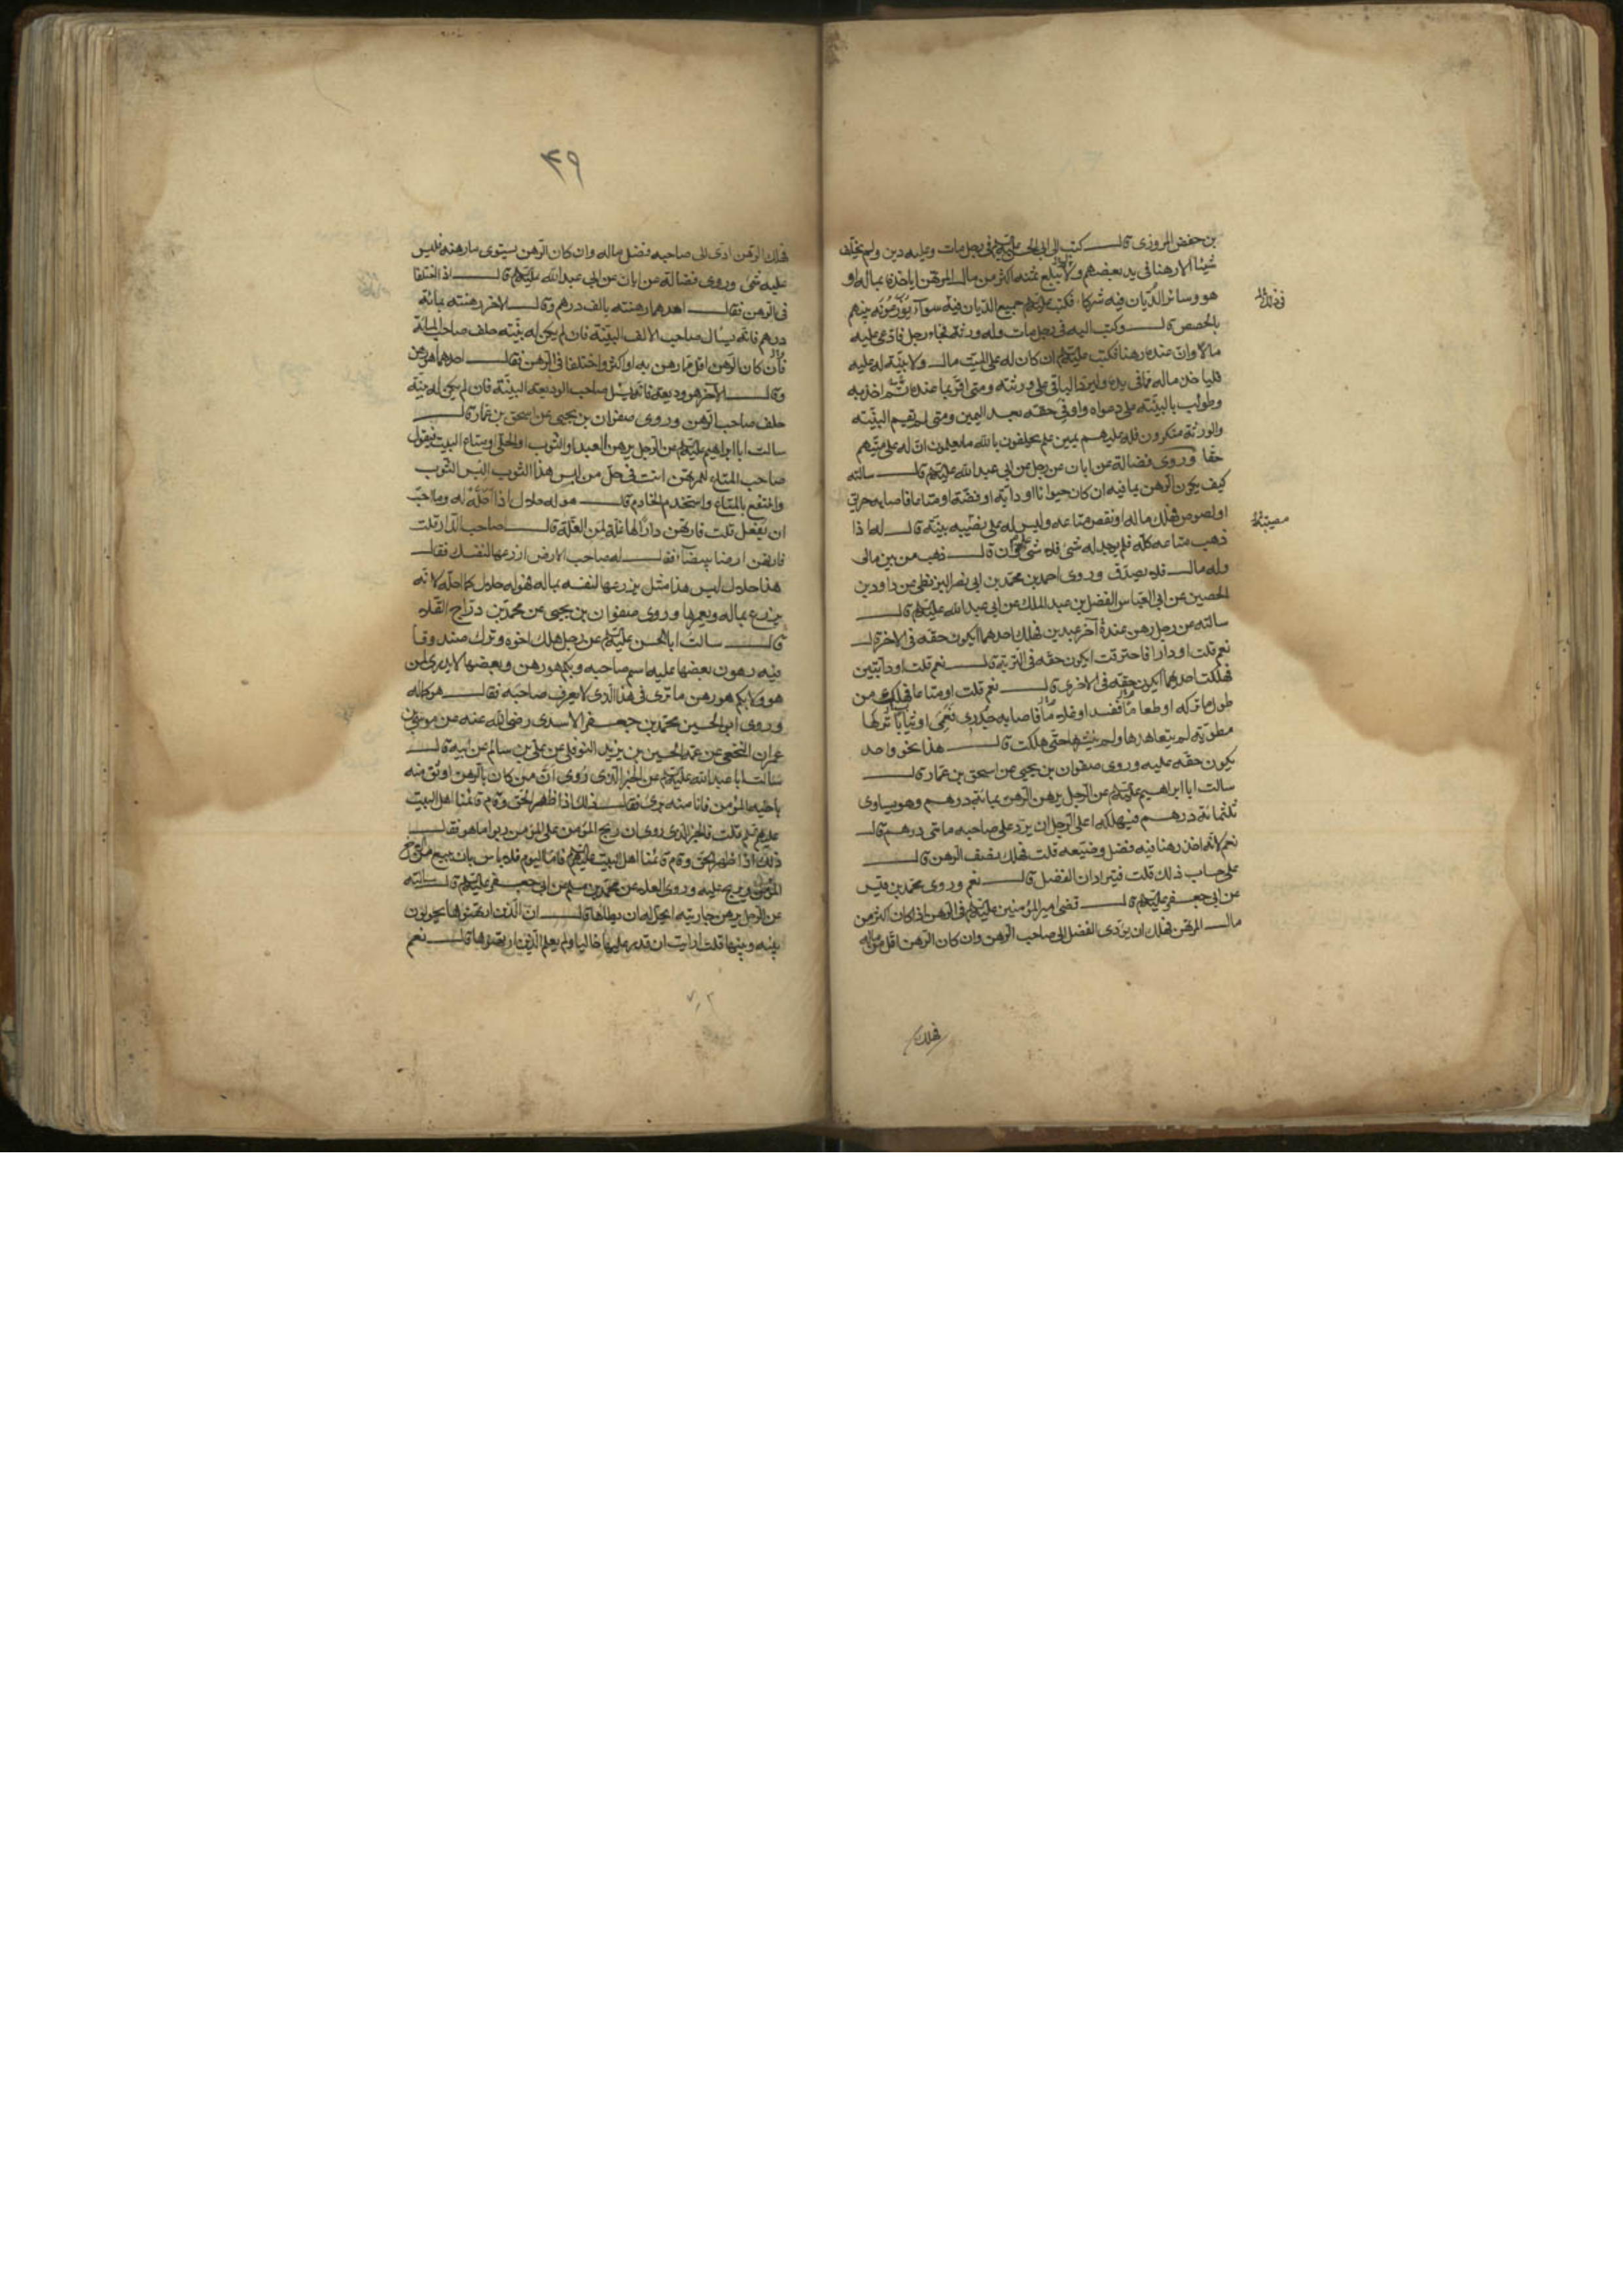 بن حفص المروزی قال کتبت الی ابی الحسن علیه‌السلام فی رجل مات وعلیه دین ولم یخلف
شیئا الا رهنا فی ید بعضهم ولا یبلغ ثمنه اکثر من مال المرتهن ایاخذه بماله او
هو وسائر الدیان فیه شرکاء فکتب علیه‌السلام جمیع الدیان فیه سواء یوزعونه بینهم
بالحصص قال وکتبت الیه فی رجل مات وله ورثة فجاء رجل فادعی علیه
مالا وان عنده رهنا فکتب علیه‌السلام ان کان له علی المیت مال ولا بینة له علیه
فلیاخذ ماله مما فی یده ولیرد الباقی علی ورثته ومتی اقر بما عنده ثم اخذ به
وطولب بالبینة علی دعواه واوفی حقه بعد الیمین ومتی لم تقم البینة
والورثة منکرون فله علیهم یمین علم یحلفون بالله ما یعلمون ان له علی میتهم
حقا وروی فضالة عن ابان عن رجل عن ابی عبد الله علیه‌السلام قال سالته
کیف یکون الرهن بما فیه ان کان حیوانا او دابة او فضة او متاعا فاصابه حریق
او لصوص فهلک ماله او نقص متاعه ولیس له علی مصیبته بینة قال اذا
ذهب متاعه کله فلم یوجد له شئ فلا شئ علیه وان قال ذهب من بین مالی
وله مال فلا یصدق وروی احمد بن محمد بن ابی نصر البزنطی عن داود بن
الحصین عن ابی العباس الفضل بن عبد الملک عن ابی عبد الله علیه‌السلام قال
سالته عن رجل رهن عنده آخر عبدین فهلک احدهما ایکون حقه فی الاخر قال
نعم قلت او دارا فاحترقت ایکون حقه فی التربة قال نعم قلت او دابتین
فهلکت احدهما ایکون حقه فی الاخری قال نعم قلت او متاعا فهلک من
طول ما ترکه او طعاما ففسد او غلاما فاصابه جدری فعمی او ثیابا ترکها
مطویة لم یتعاهدها ولم ینشرها حتی هلکت قال هذا نحو واحد
یکون حقه علیه وروی صفوان بن یحیی عن اسحق بن عمار قال
سالت ابا ابراهیم علیه‌السلام عن الرجل یرهن الرهن بمائة درهم وهو یساوی
ثلثمائة درهم فیهلکه اعلی الرجل ان یرد علی صاحبه مائتی درهم قال
نعم لانه اخذ رهنا فیه فضل وضیعه قلت فهلک نصف الرهن قال
علی حساب ذلک قلت فیترادان الفضل قال نعم وروی محمد بن قیس
عن ابی جعفر علیه‌السلام قال قضی امیر المؤمنین علیه‌السلام فی الرهن اذا کان اکثر من
مال المرتهن فهلک ان یؤدی الفضل الی صاحب الرهن وان کان الرهن اقل من ماله
فهلک
۴۹
فهلک الرهن ادی الی صاحبه فضل ماله وان کان الرهن یسوی ما رهنه فلیس
علیه شئ وروی فضالة عن ابان عن ابی عبد الله علیه‌السلام قال اذا اختلفا
فی الرهن فقال احدهما رهنته بالف درهم وقال الاخر رهنته بمائة
درهم فانه یسال صاحب الالف البینة فان لم یکن له بینة حلف صاحب المائة
فان کان الرهن اقل مما رهن به او اکثر واختلفا فی الرهن فقال احدهما هو رهن
وقال الآخر هو ودیعة فانه یسئل صاحب الودیعة البینة فان لم یکن له بینة
حلف صاحب الرهن وروی صفوان بن یحیی عن اسحق بن عمار قال
سالت ابا ابراهیم علیه‌السلام عن الرجل یرهن العبد او الثوب او الحلی او متاع البیت فیقول
صاحب المتاع للمرتهن انت فی حل من لبس هذا الثوب البس الثوب
وانتفع بالمتاع واستخدم الخادم قال هو له حلال اذا احله له وما احب
ان یفعل قلت فارتهن دارا لها غلة لمن الغلة قال لصاحب الدار قلت
فارتهن ارضا بیضاء فقال له صاحب الارض ازرعها لنفسک فقال
هذا حلال لیس هذا مثل یزرعها لنفسه بماله فهو له حلال کما احله لانه
یزرع بماله ویعمرها وروی صفوان بن یحیی عن محمد بن دراج القلاء
قال سالت ابا الحسن علیه‌السلام عن رجل هلک اخوه وترک صندوقا
فیه رهون بعضها علیه اسم صاحبه وبکم هو رهن وبعضها لا یدری لمن
هو ولا بکم هو رهن ما تری فی هذا الذی لا یعرف صاحبه فقال هو کماله
وروی ابی الحسین محمد بن جعفر الاسدی رضی الله عنه عن موسی بن
عمران النخعی عن عمه الحسین بن یزید النوفلی عن علی بن سالم عن ابیه قال
سالت ابا عبد الله علیه‌السلام عن الخبر الذی روی ان من کان بالرهن اوثق منه
باخیه المؤمن فانا منه بری فقال ذلک اذا ظهر الحق وقام قائمنا اهل البیت
قلت فالخبر الذی روی ان ربح المؤمن علی المؤمن ربوا ما هو فقال
ذلک اذا ظهر الحق وقام قائمنا اهل البیت علیهم‌السلام فاما الیوم فلا باس بان یبیع من الاخ
المؤمن ویربح علیه وروی العلاء عن محمد بن مسلم عن ابی جعفر علیه‌السلام قال سالته
عن الرجل یرهن جاریته ایحل له ان یطاها قال ان الذین ارتهنوها یحولون
بینه وبینها قلت ارایت ان قدر علیها خالیا ولم یعلم الذین ارتهنوها قال نعم